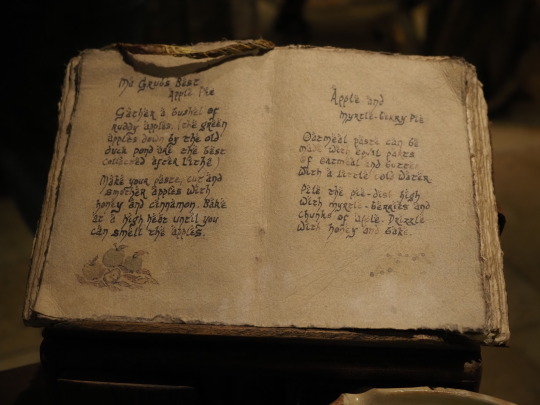 Mr Grubs Best
Apple Pie
Gather a bushel of
ruddy apples. (the green
apples down by the old
duck pond are the best
collected after Lithe)
Make your paste, cut and
smother apples with
honey and cinnamon. Bake
at a high heat until you
can smell the apples.
Apple and
Myrtle-berry Pie
Oatmeal paste can be
made with equal parts
of oatmeal and butter
with a little cold water.
Pile the pie-dish high
with myrtle-berries and
chunks of apple. Drizzle
with honey and bake.